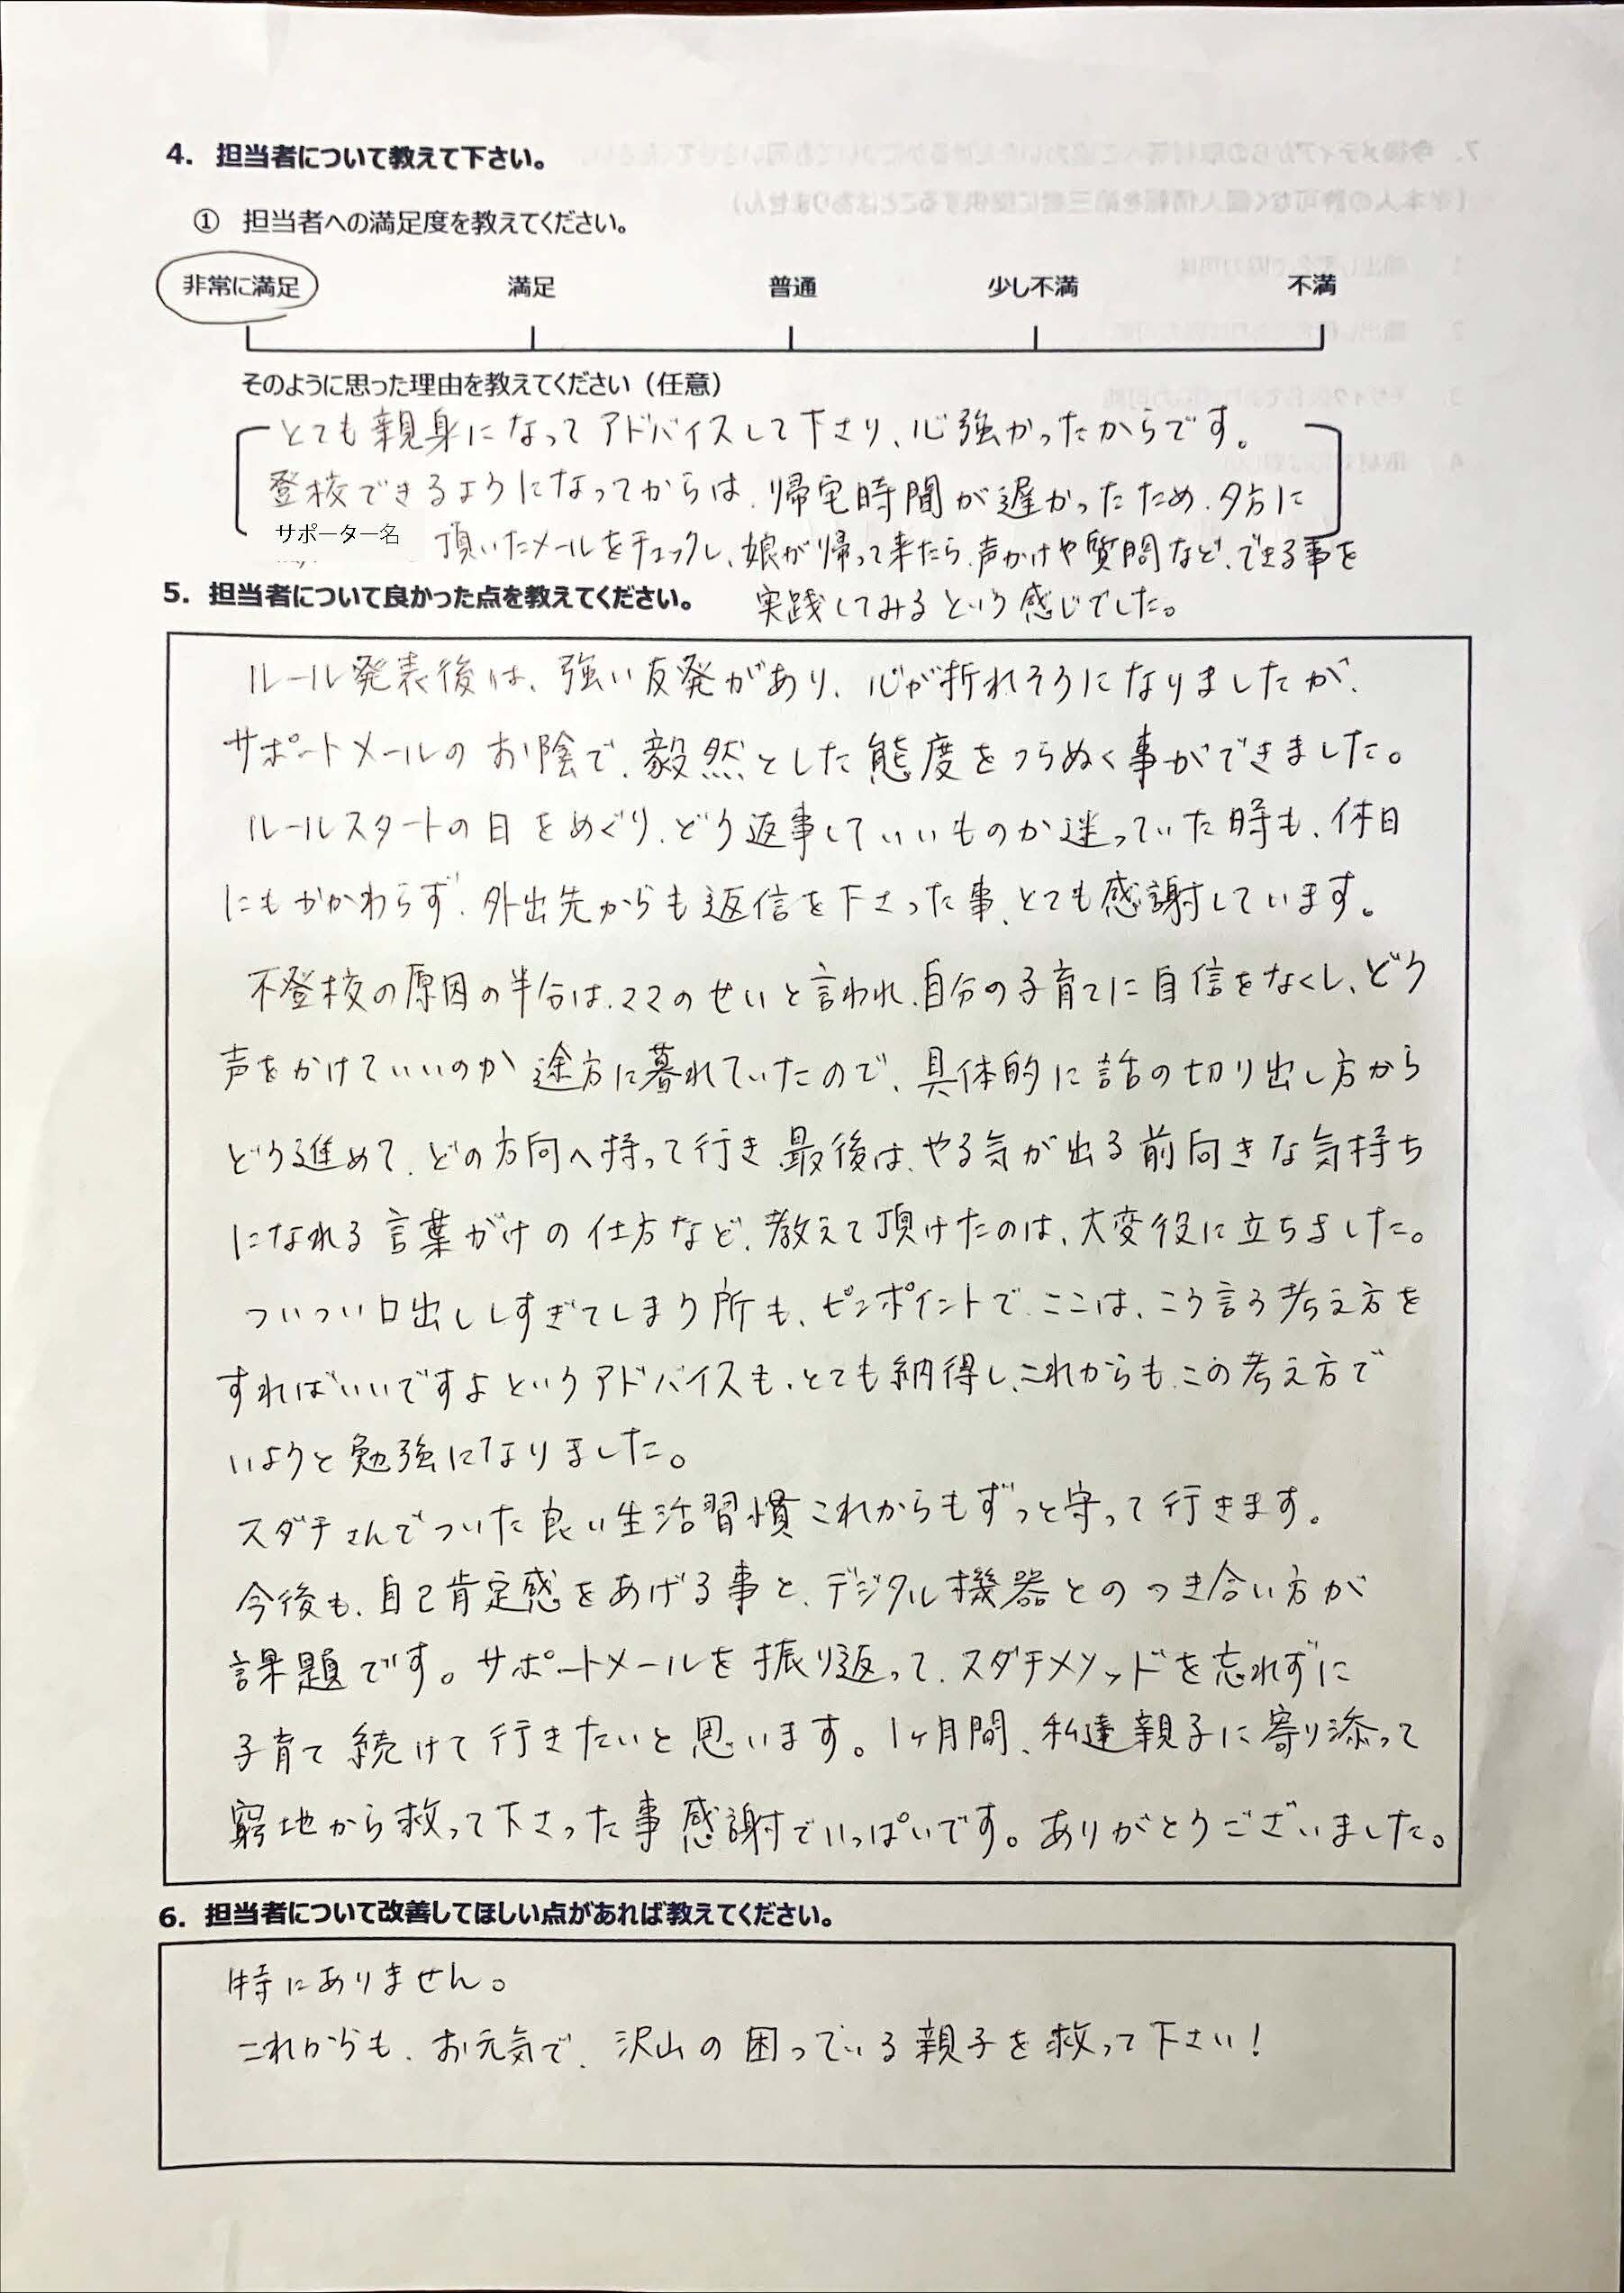 4. 担当者について教えて下さい。
① 担当者への満足度を教えてください。
非常に満足 満足 普通 少し不満 不満
そのように思った理由を教えてください（任意）
とても親身になってアドバイスして下さり、心強かったからです。
登校できるようになってからは、帰宅時間が遅かったため、夕方に
サポーター名 頂いたメールをチェックし、娘が帰って来たら、声かけや質問など、できる事を
実践してみるという感じでした。
5. 担当者について良かった点を教えてください。
ルール発表後は、強い反発があり、心が折れそうになりましたが、
サポートメールのお陰で、毅然とした態度をつらぬく事ができました。
ルールスタートの日をめぐり、どう返事していいものか迷っていた時も、休日
にもかかわらず、外出先からも返信を下さった事、とても感謝しています。
不登校の原因の半分は、ママのせいと言われ、自分の子育てに自信をなくし、どう
声をかけていいのか途方に暮れていたので、具体的に話の切り出し方から
どう進めて、どの方向へ持って行き、最後は、やる気が出る前向きな気持ち
になれる言葉がけの仕方など、教えて頂けたのは、大変役に立ちました。
ついつい口出ししすぎてしまう所も、ピンポイントで、ここは、こう言う考え方を
すればいいですよというアドバイスも、とても納得し、これからも、この考え方で
いようと勉強になりました。
スダチさんでついた良い生活習慣これからもずっと守って行きます。
今後も、自己肯定感をあげる事と、デジタル機器とのつき合い方が
課題です。サポートメールを振り返って、スダチメソッドを忘れずに
子育て続けて行きたいと思います。1ヶ月間、私達親子に寄り添って
窮地から救って下さった事感謝でいっぱいです。ありがとうございました。
6. 担当者について改善してほしい点があれば教えてください。
特にありません。
これからも、お元気で、沢山の困っている親子を救って下さい！